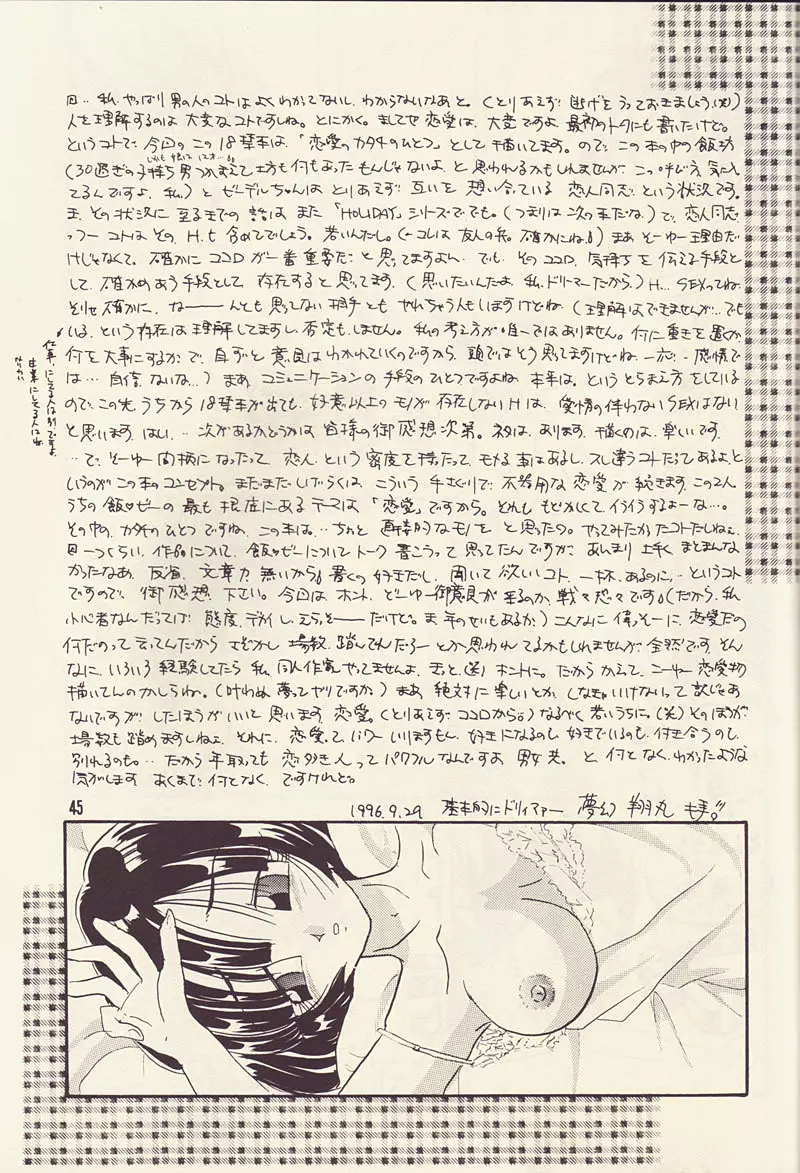 回‥私、やっぱり男の人のコトはよくわかってないし、わからないなあと。(とりあえず逃げをうっておきましょう、(笑))
人を理解するのは大変なコトですしね。とにかく。ましてや恋愛は、大変ですよ。最初のトークにも書いたけど。
というコトで、今回のこの18禁本は、「恋愛のカタチのひとつ」として描いてます。ので、この本の中の飯坊
(30過ぎの子持ち男つかまえて坊も何もあったもんじゃないよ、と思われるかもしれませんが、この呼び方、気に入っ
てるんですよ、私)とゼーデルちゃんはとりあえず互いを想い合っている恋人同志、という状況です。
ま、その状況に至るまでの話はまた「HOLIDAY」シリーズででも。(つまりは次の本だな)で、恋人同志
っつーコトはその、Hも含めてでしょう。若いんだし。(←コレは友人の弁。確かにね!)まあそーゆー理由だ
けじゃなくて、確かにココロが一番重要だと思ってますよん‥でも、そのココロ、気持ちを伝える手段と
して、確かめあう手段として存在すると思ってます。(思いたいんだよ、私、ドリーマーだから)H…SEXってね。
そりゃ確かに、なーーんとも思ってない相手ともやれちゃう人もいますけどね、(理解はできませんが‥でも
いる、という存在は理解してますし、否定もしません。私の考え方が唯一ではありません。何に重きを置くか、
何を大事にするか、で、自ずと意見はわかれていくのですから、頭ではそう思ってますけどね、一応‥感情で
は…自信、ないな‥)まあ、コミュニケーションの手段のひとつですよね、本年は。というとらえ方をしている
ので、この先、うちから18禁本が出ても、好意以上のモノが存在しないHは、愛情の伴わないSEXはない
と思います、はい…次があるかどうかは皆様の御感想次第。ネタは、あります。描くのは、楽しいです。
仕事にしてる人は別ですよ
…で、そーゆー間柄になったって、恋人、という密度を持たって、モメる事はあるし、スレ違うコトだってあるよ、と
いうのがこの本のコンセプト。まだまだしばらくは、こういう手さぐりで、不器用な恋愛が続きます、この2人
うちの飯♡ゼーの最も根底にあるテーマは「恋愛」ですから。とれも、もどかしくてイライラするよーな…。
その中の、カタチのひとつですね、この本は…ちょっと
と思ったの。やってみたかったコトだしねえ。
、作品について、飯♡ゼーについてトーク書こうって思ってたんですが、あんまり上手くまとまんな
かったなあ、反省、文章力無いから!書くの好きだし、聞いて欲しいコト、一杯、あるのに‥というコト
ですので、御感想、下さい。今回は、ホント、どーゆー御意見が来るのか、戦々恐々です!(だから、私
小心者なんだってば、態度、デカイし、えらそーだけど。ま、年のせいもあるか)こんなに偉そーに、恋愛だの
何だのって言ってんだから、さぞかし場数、踏んでんだろーとか思われてるかもしれませんが、全然です、そん
なに、いろいろ経験してたら私、同人作家、やってませんよ、きっと(笑)ホントに。だからかえって、こーゆー恋愛物
描いてんのかしらね。(叶わぬ夢ってヤツですか)まあ、絶対に楽しいとか、しなきゃいけないって訳じゃあ
ないですが、したほうがいいと思います、恋愛。(とりあえず、ココロから♡)なるべく若いうちに。(笑)そのほうが
場数も踏めますしねえ、それに、恋愛って、パワーいりますもん。好きになるのも、好きでいるのも、付き合うのも、
別れるのも。‥だから年取っても、恋多き人ってパワフルなんですよ、男女共。と、何となくわかったような
気がします、あくまで、何となく、ですけれど。
45
1996.9.29 基本的にドリィマァー 夢幻 翔丸